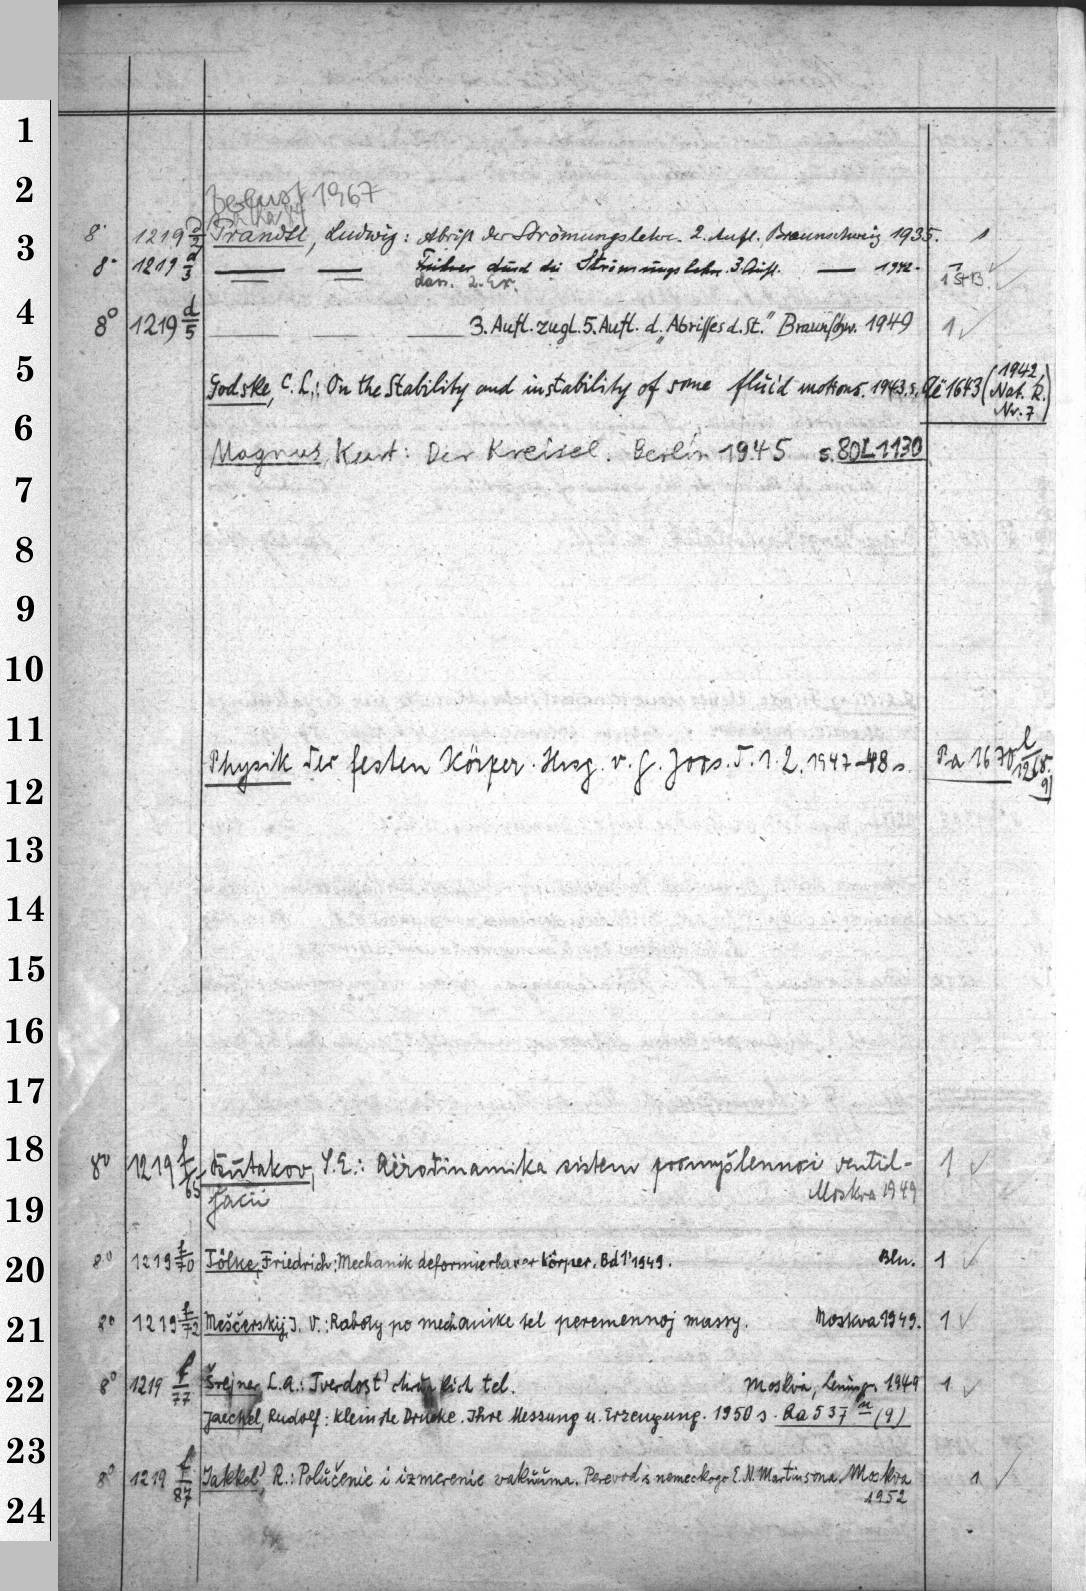 1
2
1967
3
8° 1219 d/2 Prandtl, Ludwig: Abriß der Strömungslehre. 2. Aufl. Braunschweig 1935. 1
8° 1219 d/3 — — Führer durch die Strömungslehre. 3. Aufl. — 1942. 1
dass. 2. Ex. 1 StB.
4
8° 1219 d/5 — — — 3. Aufl. zugl. 5. Aufl. d. „Abrisses d. St.“ Braunschw. 1949 1
5
Godske, C. L.: On the Stability and instability of some fluid motions. 1943. s. Qe 1643 (1942, Nat. R. Nr. 7)
6
Magnus, Kurt: Der Kreisel. Berlin 1945 s. 80 L 1130
7
8
9
10
11
Physik der festen Körper. Hrsg. v. G. Joos. T. 1. 2. 1947-48 s. Pa 1670 l/12 (8. 9)
12
13
14
15
16
17
18
8° 1219 f/65 Kutakov, S. E.: Aėrodinamika sistem promyšlennoi ventil-
jacii Moskva 1949 1
19
20
8° 1219 f/70 Tölke, Friedrich: Mechanik deformierbarer Körper. Bd 1. 1949. Bln. 1
21
8° 1219 f/72 Meščerskij, I. V.: Raboty po mechanike tel peremennoj massy. Moskva 1949. 1
22
8° 1219 f/77 Šrejner, L. A.: Tverdost' chrupkich tel. Moskva, Leningr. 1949 1
Jaeckel, Rudolf: Kleinste Drucke. Ihre Messung u. Erzeugung. 1950 s. Ra 537 n (9)
23
8° 1219 f/87 Jakkel', R.: Polučenie i izmerenie vakuuma. Perevod s nemeckogo E. N. Martinsona. Moskva
1952 1
24